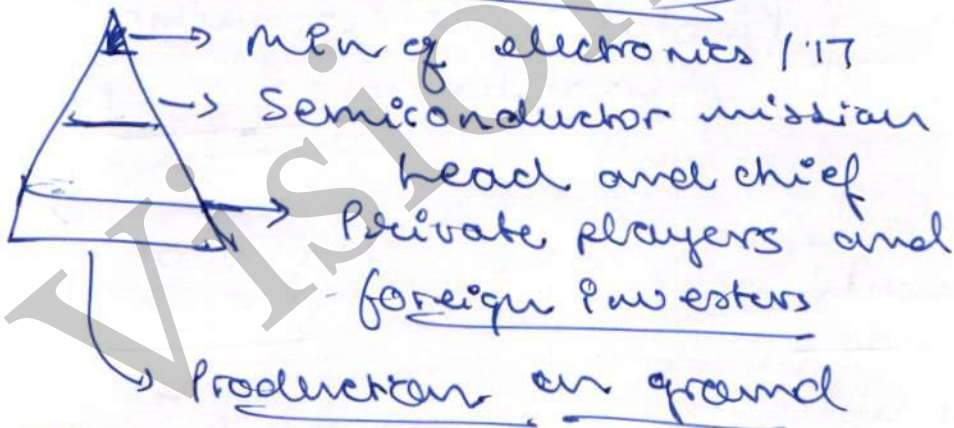 Min of electronics / IT
Semiconductor mission
head and chief
Private players and
foreign investers
Production on ground
Vision